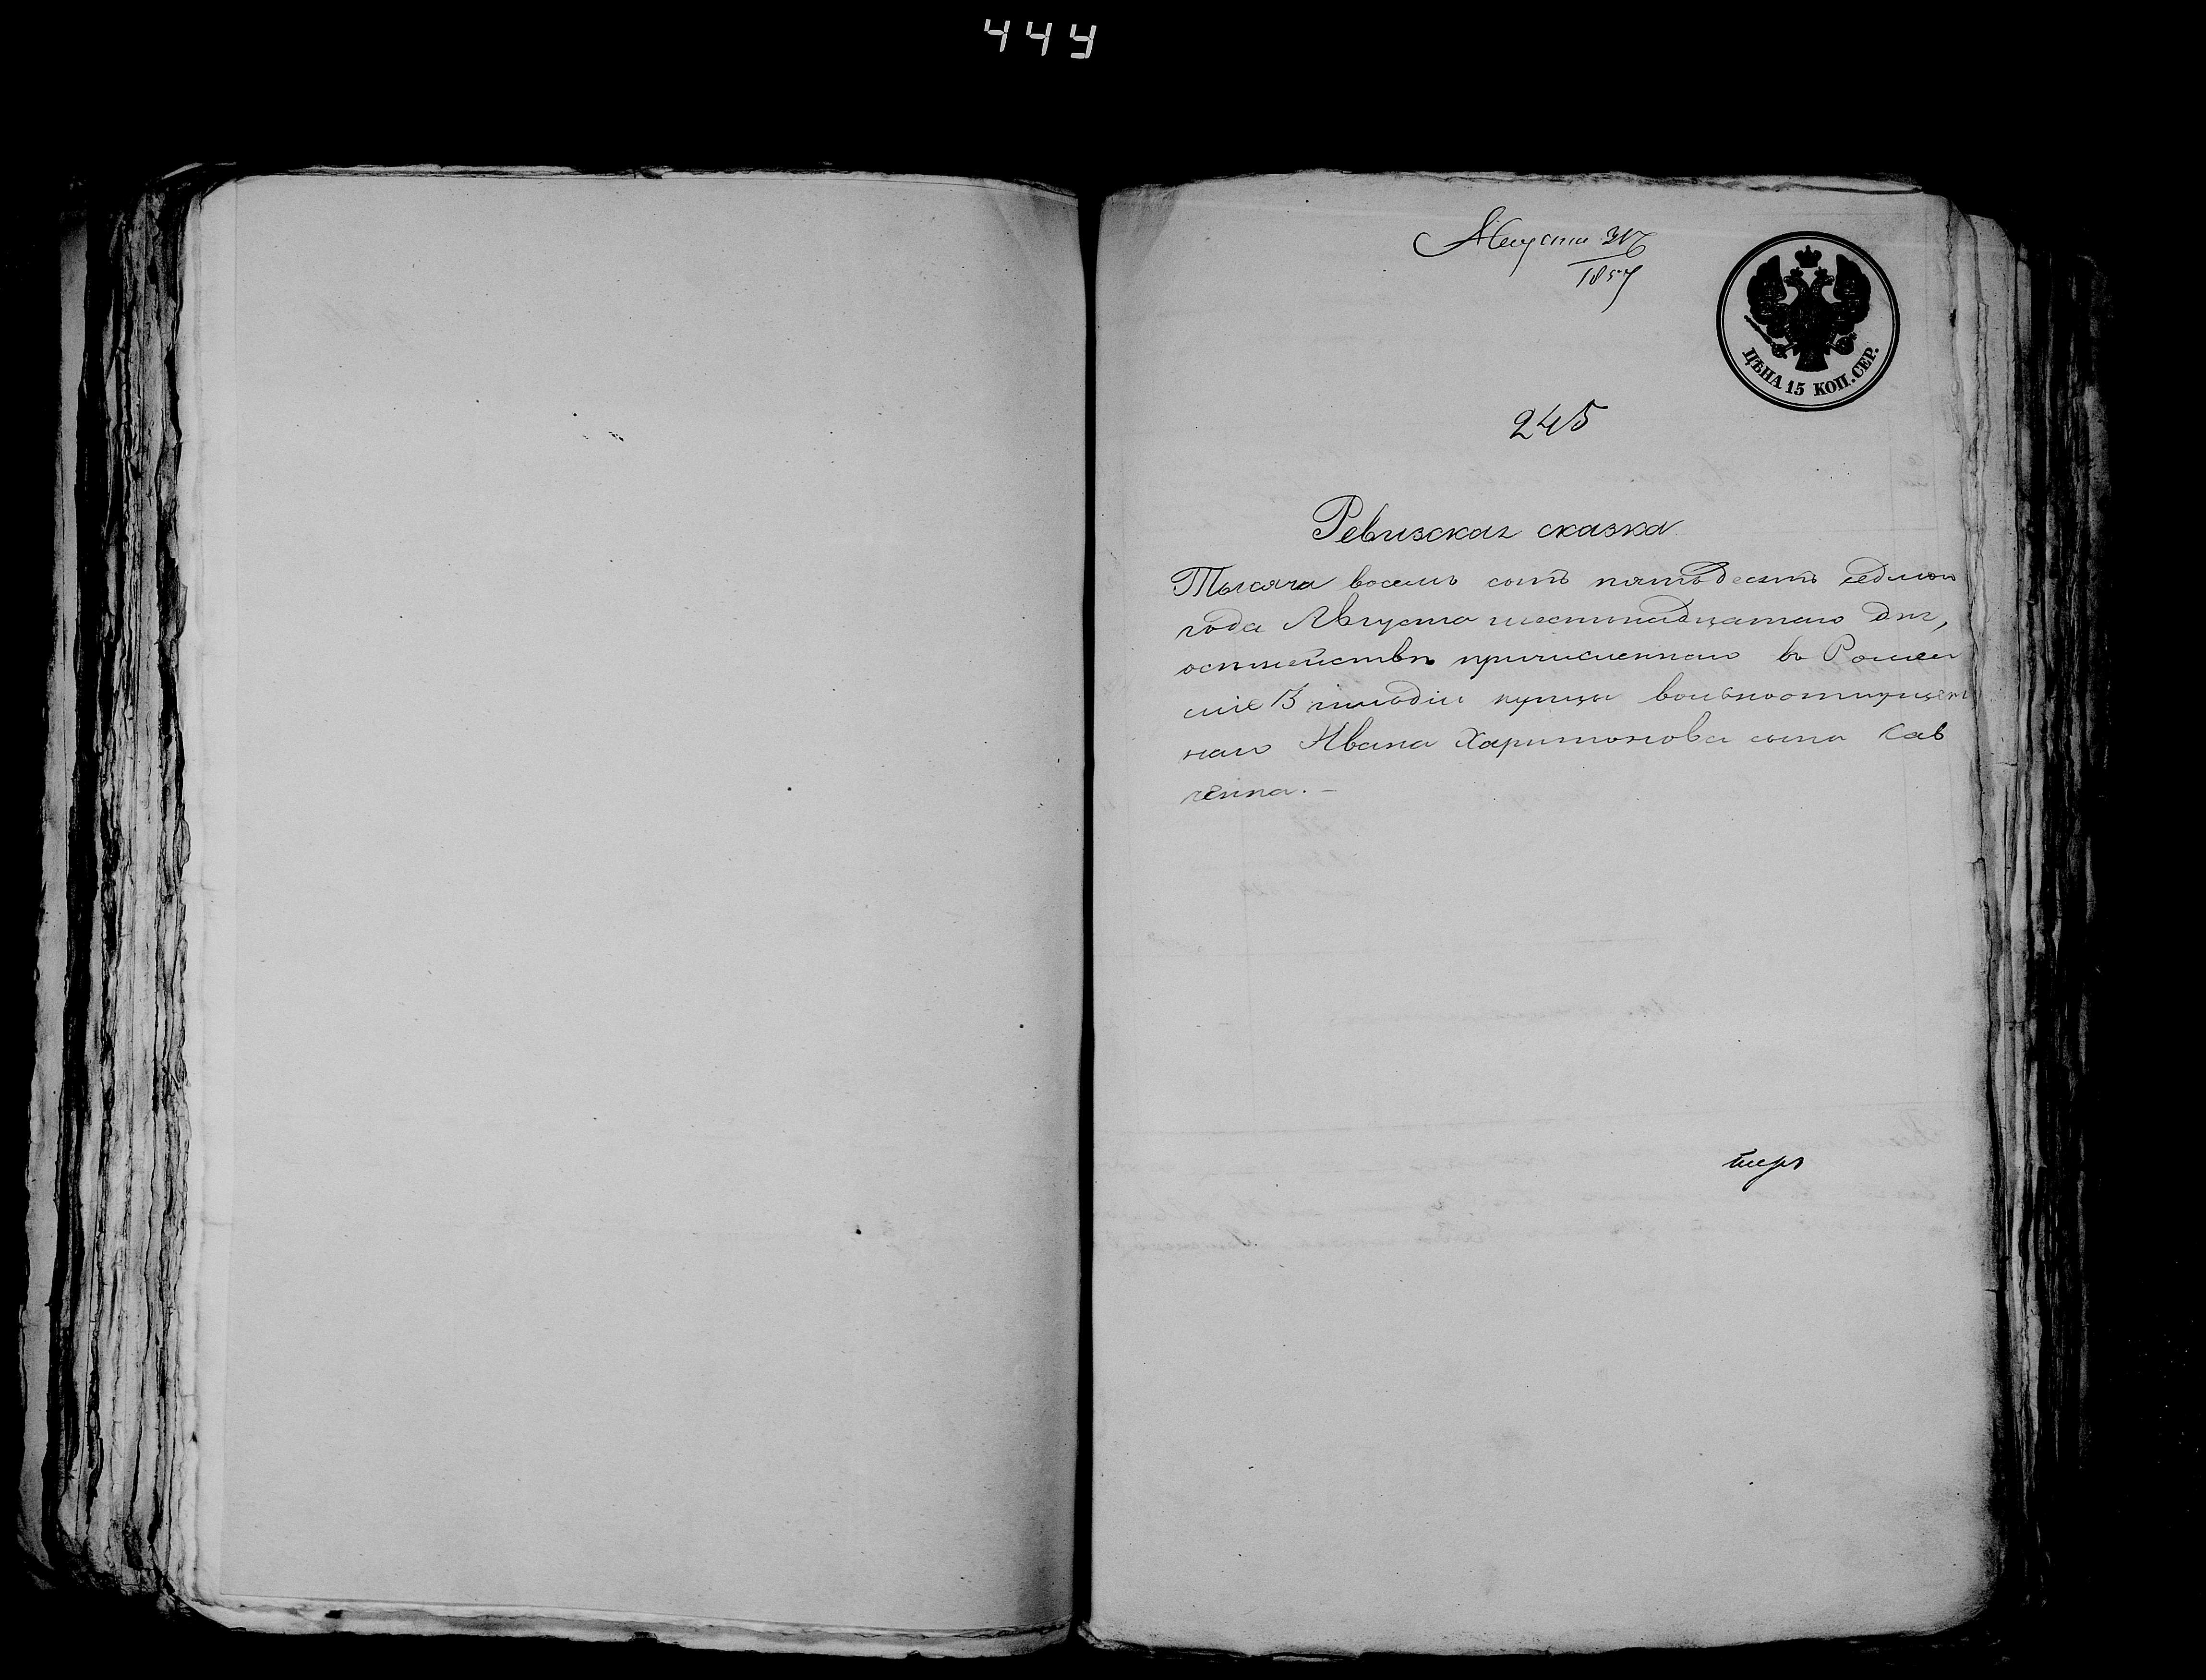 444
Августа 31
1857
ЦѢНА 15 КОП. СЕР.
245
Ревизская сказка
Тысяча восемь сотъ пятьдесятъ седмого
года Августа шестнадцатаго дня,
о семействѣ причисленнаго въ Ромен
скіе 3 гильдіи купцы вольноотпущен
наго Ивана Харитонова сына Сав
ченка. –